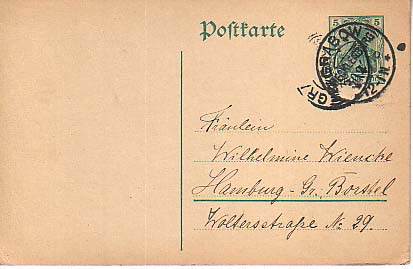 Postkarte
5 5
GRABOW
12-1N
Fräulein
Wilhelmine Wiencke
Hamburg-Gr. Borstel
Woltersstraße No 29.